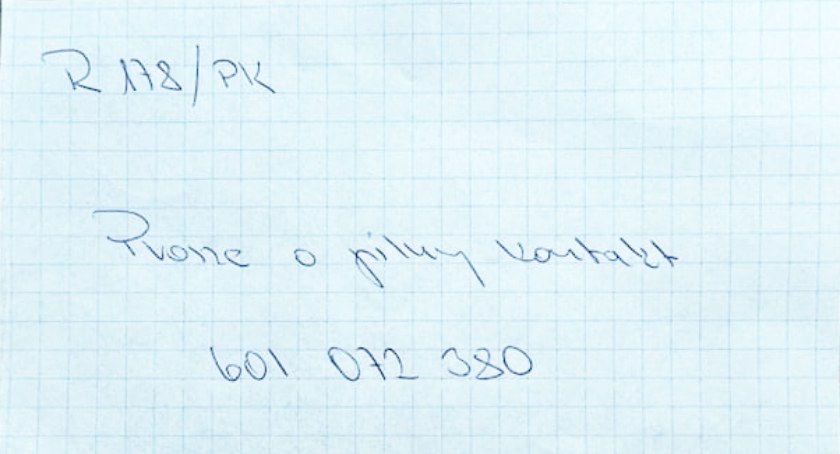 R 178/PK
Proszę o pilny kontakt
601 072 380